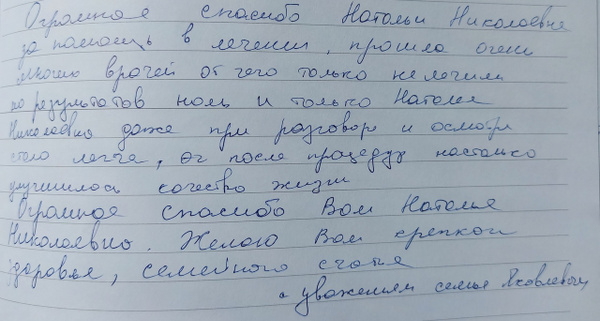 Огромное спасибо Натальи Николаевне
за помощь в лечении, прошла очень
многих врачей от чего только не лечили
но результатов ноль и только Наталья
Николаевна даже при разговоре и осмотре
стало легче, а после процедур настолько
улучшилось качество жизни
Огромное спасибо Вам Наталья
Николаевна. Желаю Вам крепкого
здоровья, семейного счатья
с уважением семья